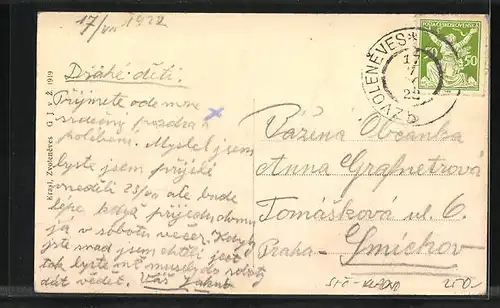 17/VII 1922
Drahé děti.
Přijmete ode mne
srdečný pozdrav a
políbení. Myslel jsem
byste jsem přijeli
v neděli 23/VII ale bude
lépe když přijedu domu
já v sobotu večer. Kdyby
jste snad jsem chtěli jeet
tak byste mě musely do soboty
dát vědět. Váš Jakub
Krazl, Zvoleněves G J Ž. 1919
POŠTA ČESKOSLOVENSKÁ
50
ZVOLENĚVES
17
22
Vážená Občanka
Anna Grafnetrová
Tomášková ul. 6
Praha-
Smíchov
250.-